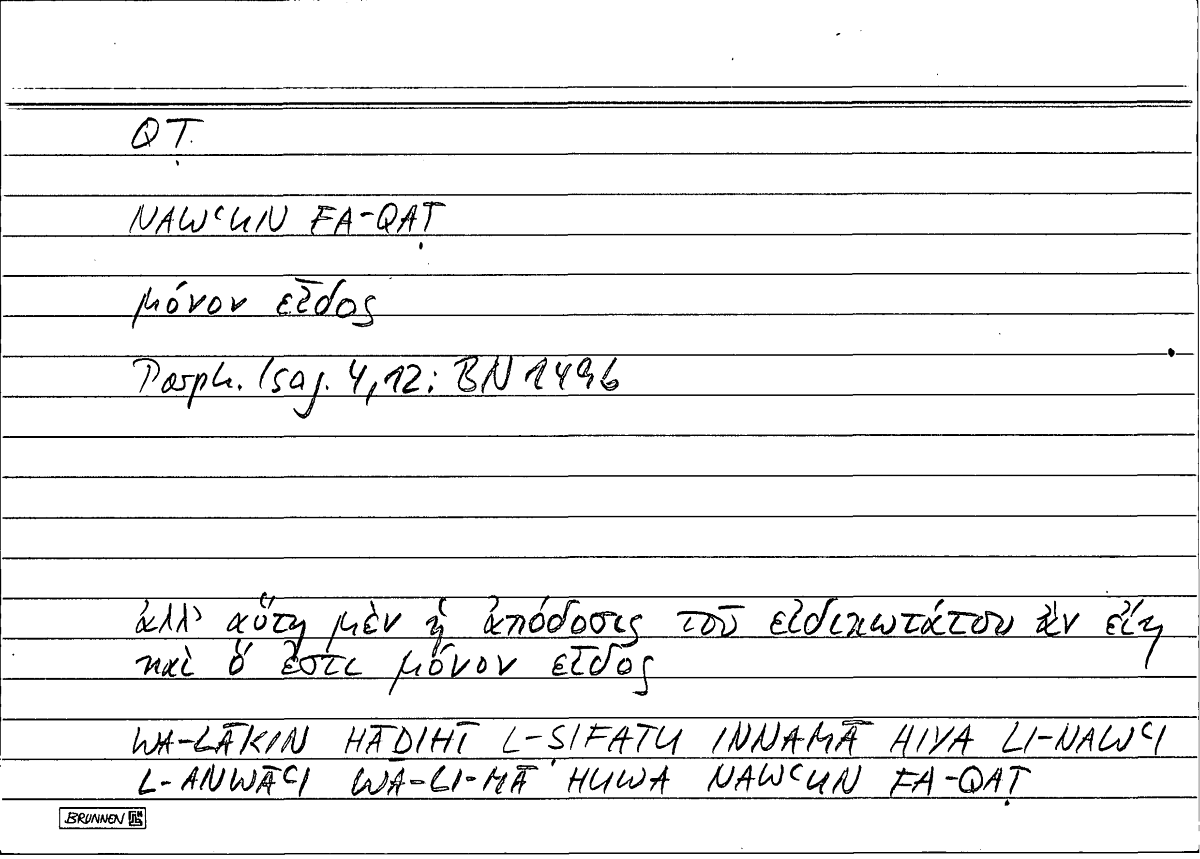 QṬ
NAWʿUN FA-QAṬ
μόνον εἶδος
Porph. Isag. 4,12: BN 1496
ἀλλ' αὕτη μὲν ἡ ἀπόδοσις τοῦ εἰδικωτάτου ἂν εἴη
καὶ ὅ ἐστι μόνον εἶδος
WA-LĀKIN HĀḎIHĪ L-ṢIFATU INNAMĀ HIYA LI-NAWʿI
L-ANWĀʿI WA-LI-MĀ HUWA NAWʿUN FA-QAṬ
BRUNNEN